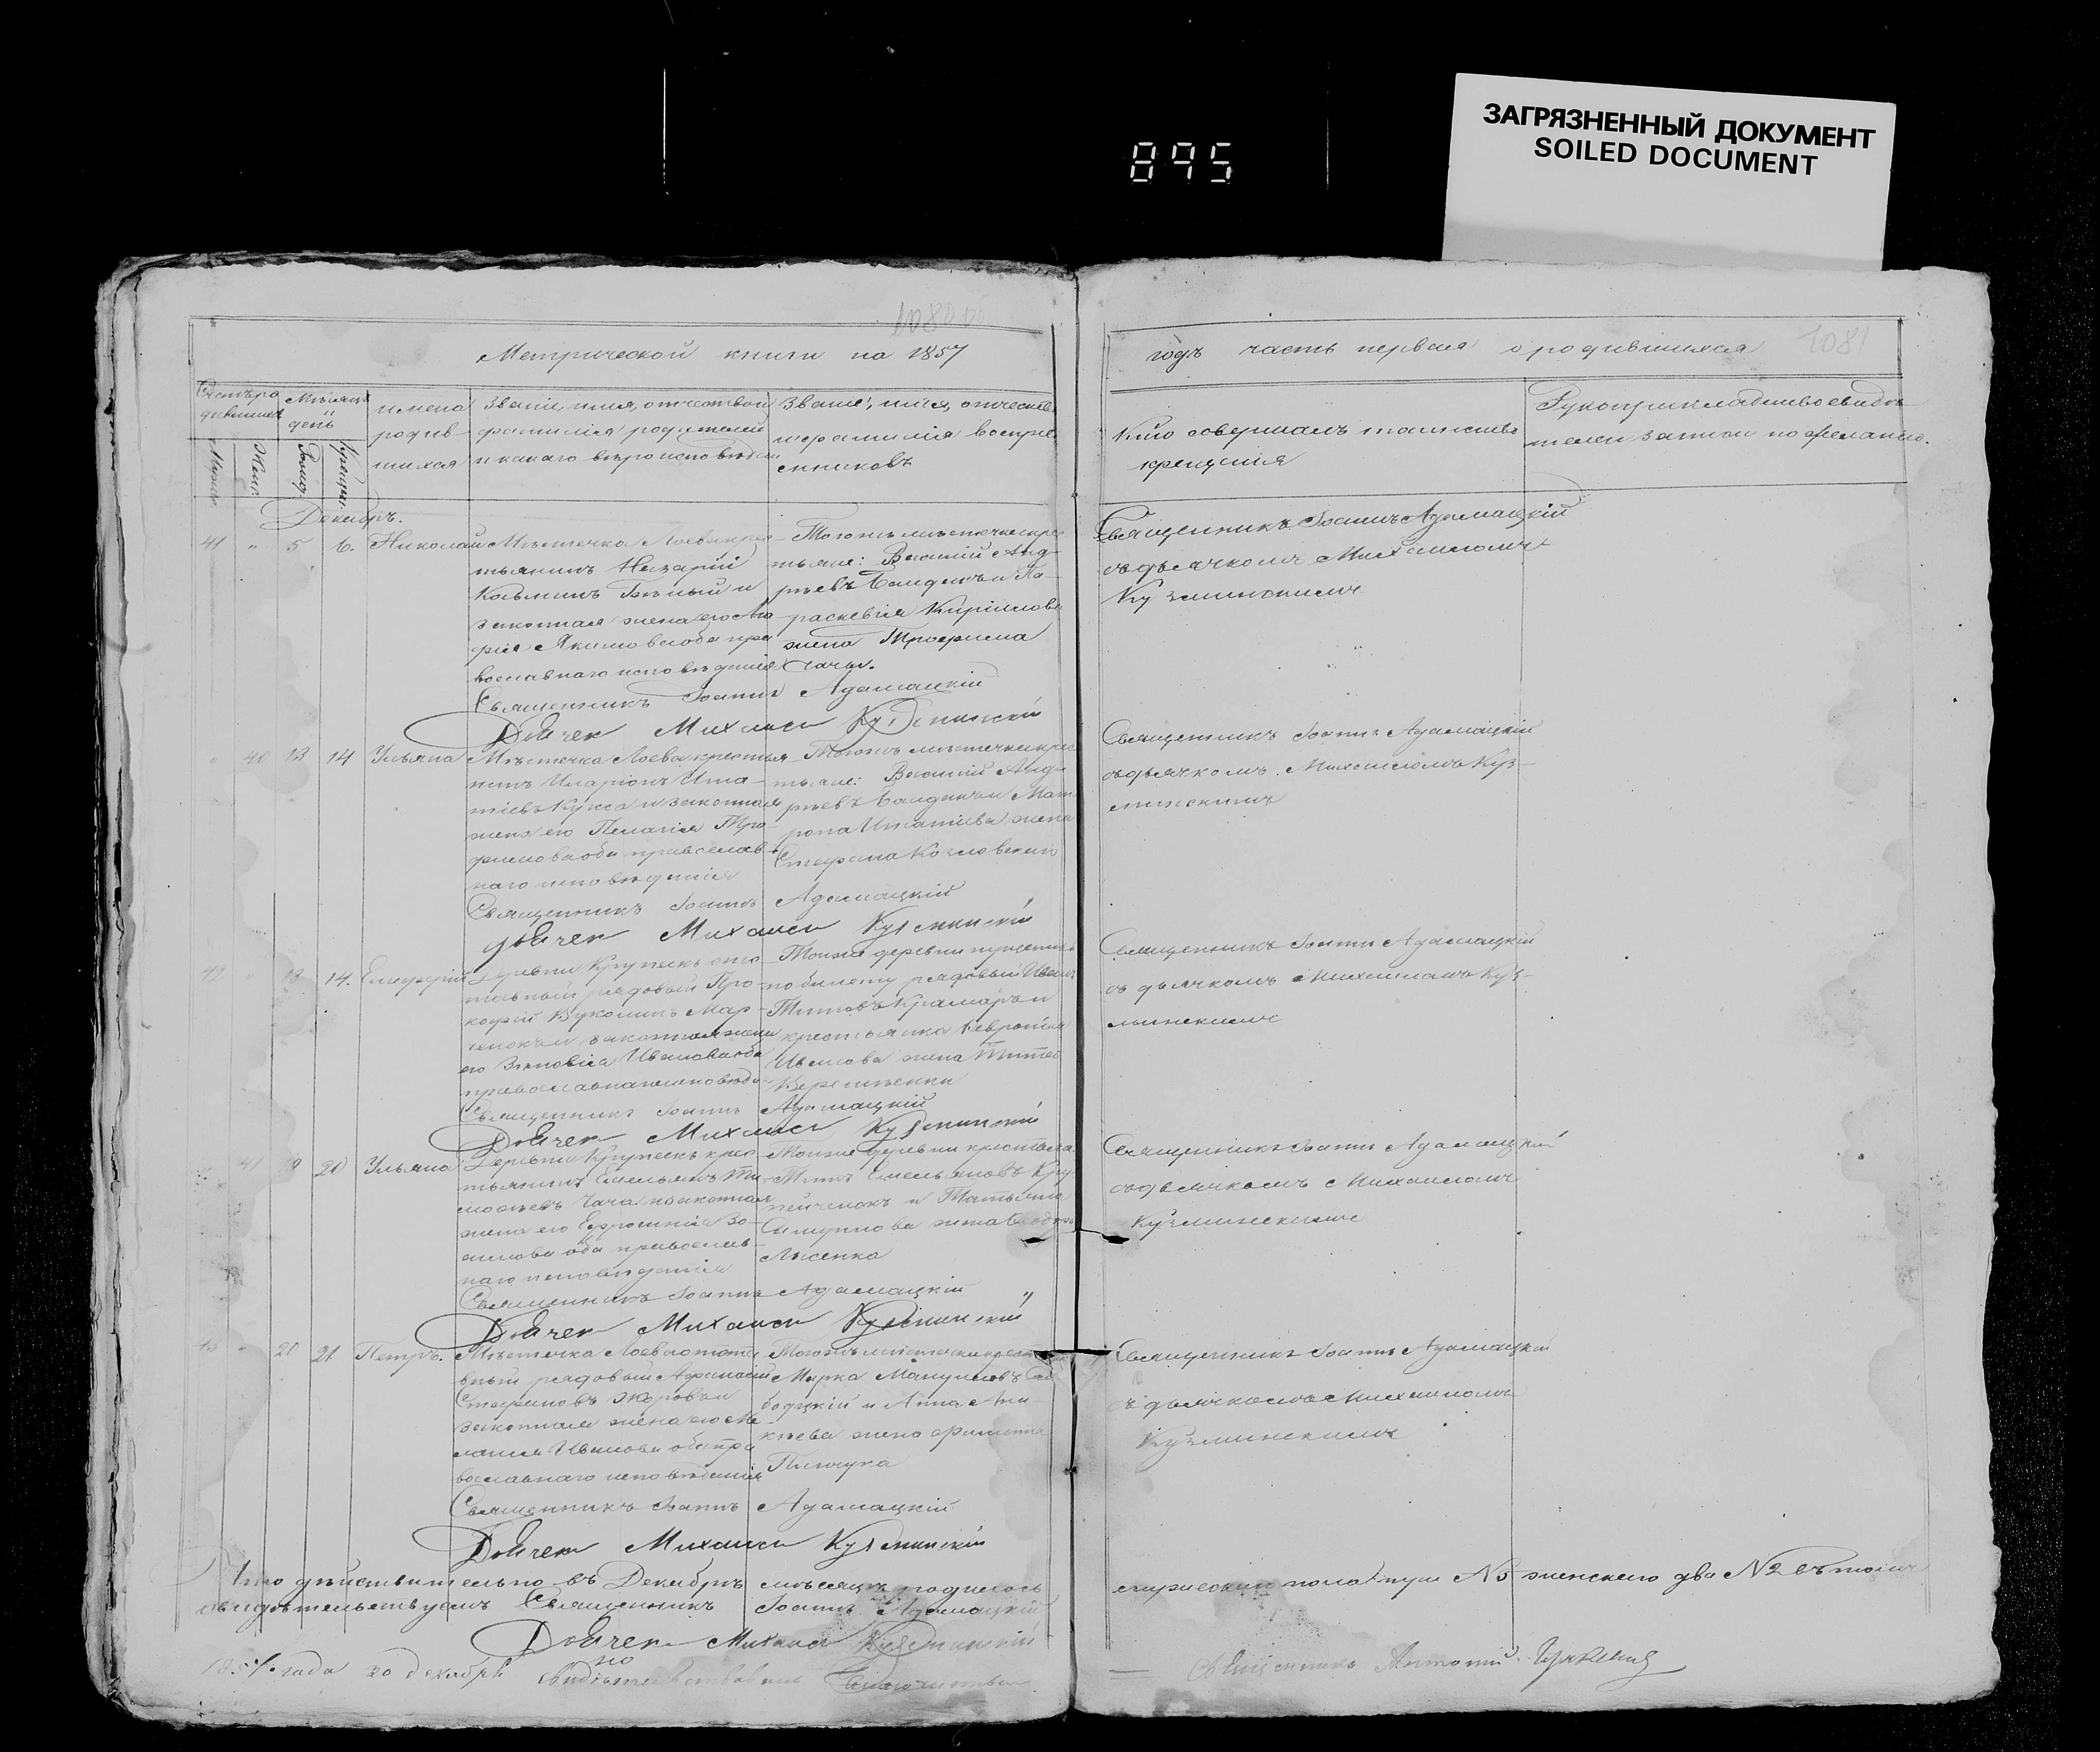 895
ЗАГРЯЗНЕННЫЙ ДОКУМЕНТ
SOILED DOCUMENT
1080 об
1081
Метрической книги на 1857
годъ часть первая о родившихся
Счетъ ро
дившихся
Муж.
Жен.
Мѣсяцъ
и
день
Рожд.
Крещен.
имена
родив-
шихся
Званіе, имя, отчество и
фамилія родителей
и какаго вѣроисповѣданія
Званіе, имя, отчество
и фамилія воспріе
емниковъ
Кто совершалъ таинство
крещенія
Рукоприкладство свидѣ
телей записи по желанію.
Декабрь.
41 " 5 6. Николай
Мѣстечка Лоева крес
тьянинъ Назарій
Козьминъ Бѣлый и
законная жена его
Якимова оба пра
вославнаго исповѣданія
Тогожъ мѣстечка кре
тьяне: Василій Анд-
реевъ и Па-
раскевія Кирилова
жена Трофима
Чачи.
Священникъ Іоаннъ Адамацкій
Дьячек Михаил Кузминскій
Священникъ Іоаннъ Адамацкій
съ дьячкомъ Михаиломъ
Кузминскимъ
" 40 13 14 Ульяна
Мѣстечка Лоева крестья
нинъ Иларіонъ Игна-
тіевъ Кукса и законная
жена его Пелагія Тро-
фимова оба православ-
наго исповѣданія
Тогожъ мѣстечка крес
тьяне: Василій Анд-
реевъ и Мат
рона Игнатіева жена
Стефана Козловскаго
Священникъ Іоаннъ Адамацкій
дьячек Михаил Кузминскій
Священникъ Іоаннъ Адамацкій
съ дьячкомъ Михаиломъ Куз-
минскимъ
42 " 13 14. Елевферій
Деревни Крупекъ отс
тавный рядовый Про-
кофій Вуколинъ Мар-
ченокъ и законная жена
его Зиновія Иванова оба
православнаго исповѣда
Тойже деревни
по билету рядовый Иванъ
Титовъ Крамаръ и
крестьянка Февронія
Иванова жена Тита
Священникъ Іоаннъ Адамацкій
Дьячек Михаил Кузминскій
Священникъ Іоаннъ Адамацкій
съ дьячкомъ Михаиломъ Куз-
минскимъ
" 41 19 20 Ульяна
Деревни Крупекъ крес
тьянинъ Емельянъ Ти-
моѳеевъ Чача и законная
жена его Ефросинія
оба православ-
наго исповѣданія
Тойже деревни крестьяне
Титъ Емельяновъ Кру
пейченокъ и Татьяна
жена Ѳеодора
Лысенка
Священникъ Іоаннъ Адамацкій
Дьячек Михаил Кузминскій
Священникъ Іоаннъ Адамацкій
съ дьячкомъ Михаиломъ
Кузминскимъ
43 " 20 21 Петръ.
Мѣстечка Лоева отста
вный рядовый Афанасій
Стефановъ и
законная жена его Ме
ланія Иванова оба пра
вославнаго исповѣданія
Тогожъ мѣстечка крес
Марко Мануиловъ Сло
бодцкій и Анна
жена Филиппа
Пинчука
Священникъ Іоаннъ Адамацкій
Дьячек Михаил Кузминскій
Священникъ Іоаннъ Адамацкій
съ дьячкомъ Михаиломъ
Кузминскимъ
Что дѣйствительно въ Декабрѣ мѣсяцѣ родилось
мужескаго пола три №3 женскаго два №2 въ томъ
свидѣтельствуемъ Священникъ Іоаннъ Адамацкій
Дьячек Михаил Кузминскій
1857 года 30 декабря свидѣтельствовалъ Благочинный
Священникъ Антоній